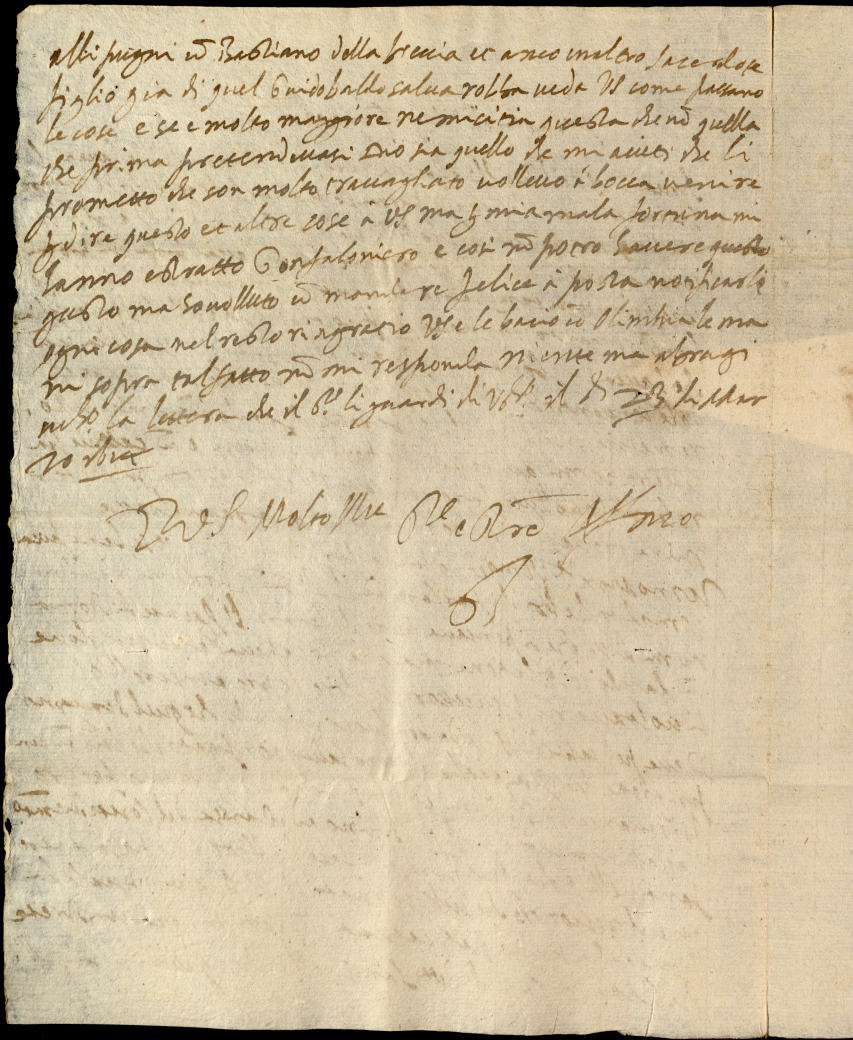 alli pugni cō Bastiano della freccia et anco un altro sacerdote
figlio gia di quel Guidobaldo salua robba ueda VS come passano
le cose e se e molto maggiore nemicitia questa che nō quella
che prima pretendeuasi Dio sia quello che mi aiuti che li
prometto che son molto trauagliato volleuo à bocca uenire
dire questo et altre cose à VS ma mia mala fortuna mi
hanno estratto Gonfaloniero e cosi nō potro hauere questo
gusto ma ho volluto mandare felice à posta notificarli
ogni cosa nel resto ringratio VS e le bacio Olimpia le ma
ni sopra tal fatto nō mi responda niente ma abrugi
la lettera che il li guardi di il di 23 di Mar
zo
Di VS Molto Ill.re